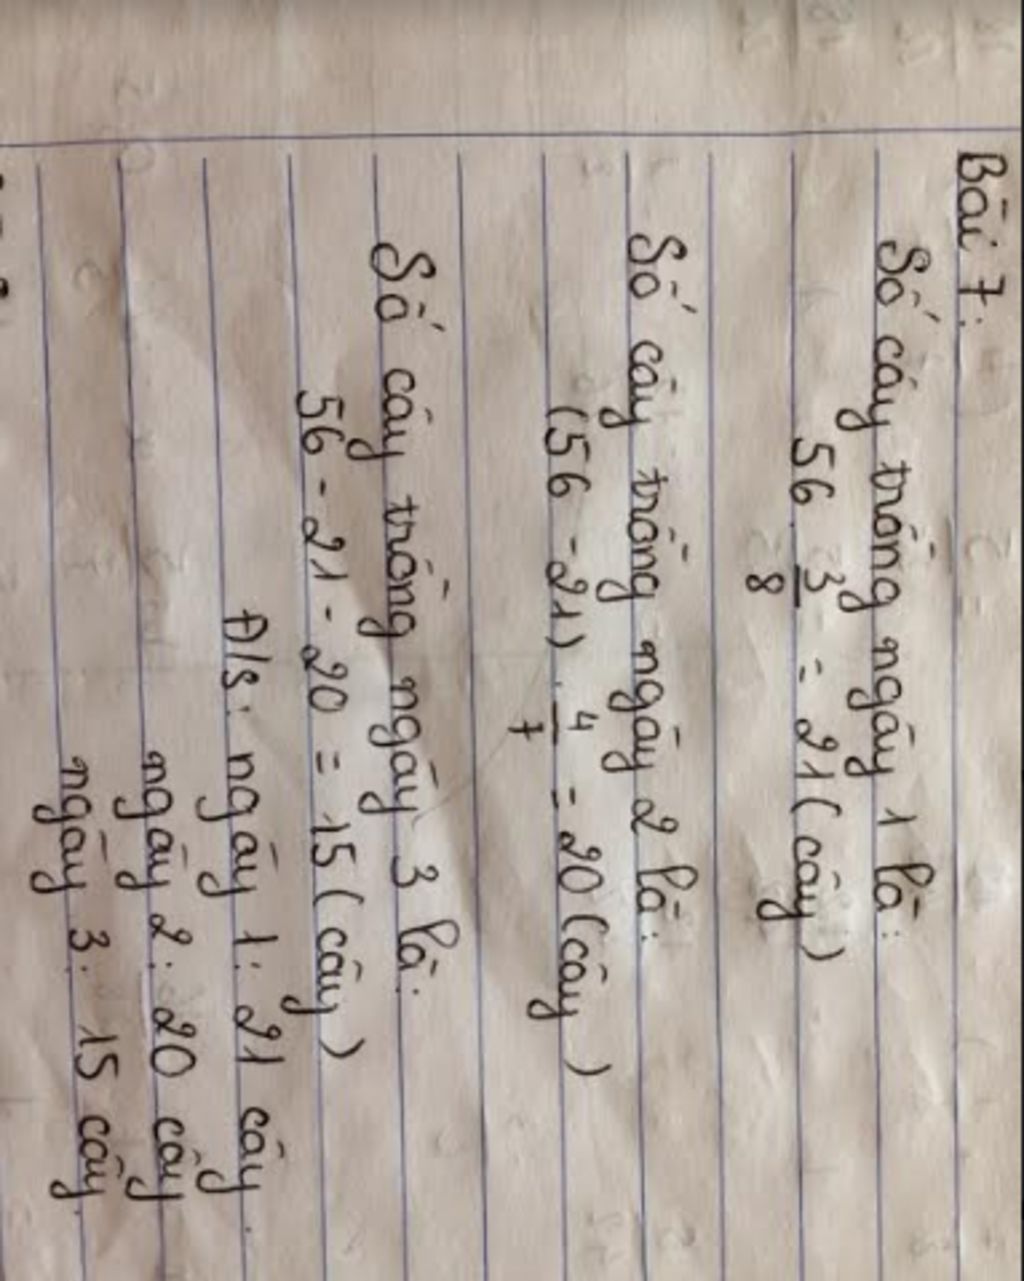 Bài 7:
Số cây trồng ngày 1 là:
56 . 3/8 = 21 (cây)
Số cây trồng ngày 2 là:
(56 - 21) . 4/7 = 20 (cây)
Số cây trồng ngày 3 là:
56 - 21 - 20 = 15 (cây)
Đ/s: ngày 1: 21 cây.
ngày 2: 20 cây
ngày 3: 15 cây.